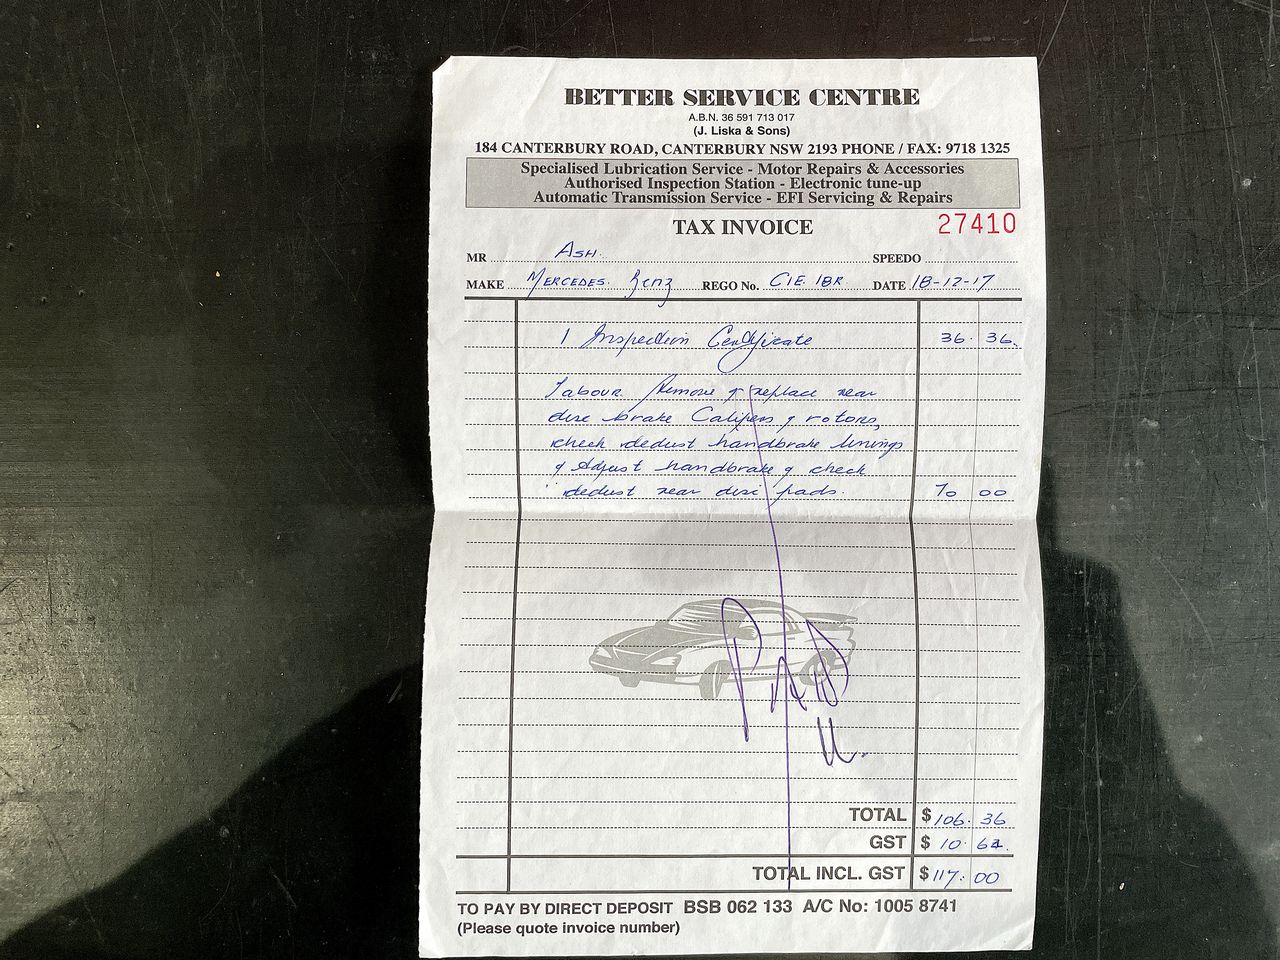 BETTER SERVICE CENTRE
A.B.N. 36 591 713 017
(J. Liska & Sons)
184 CANTERBURY ROAD, CANTERBURY NSW 2193 PHONE / FAX: 9718 1325
Specialised Lubrication Service - Motor Repairs & Accessories
Authorised Inspection Station - Electronic tune-up
Automatic Transmission Service - EFI Servicing & Repairs
TAX INVOICE 27410
MR ASH. SPEEDO
MAKE MERCEDES Benz REGO No. CIE 18R DATE 18-12-17
1 Inspection Certificate 36. 36.
Labour Remove & replace rear
disc brake Calipers & rotors,
check dedust handbrake linings
& Adjust handbrake & check
dedust rear disc pads. 70 00
TOTAL $ 106. 36
GST $ 10. 64.
TOTAL INCL. GST $ 117. 00
TO PAY BY DIRECT DEPOSIT BSB 062 133 A/C No: 1005 8741
(Please quote invoice number)